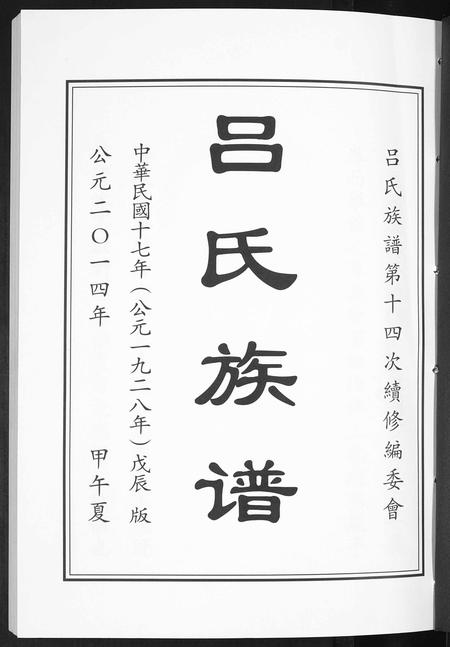 吕氏族譜第十四次續修編委會
吕氏族谱
中華民國十七年(公元一九二八年)戊辰版
公元二〇一四年 甲午夏